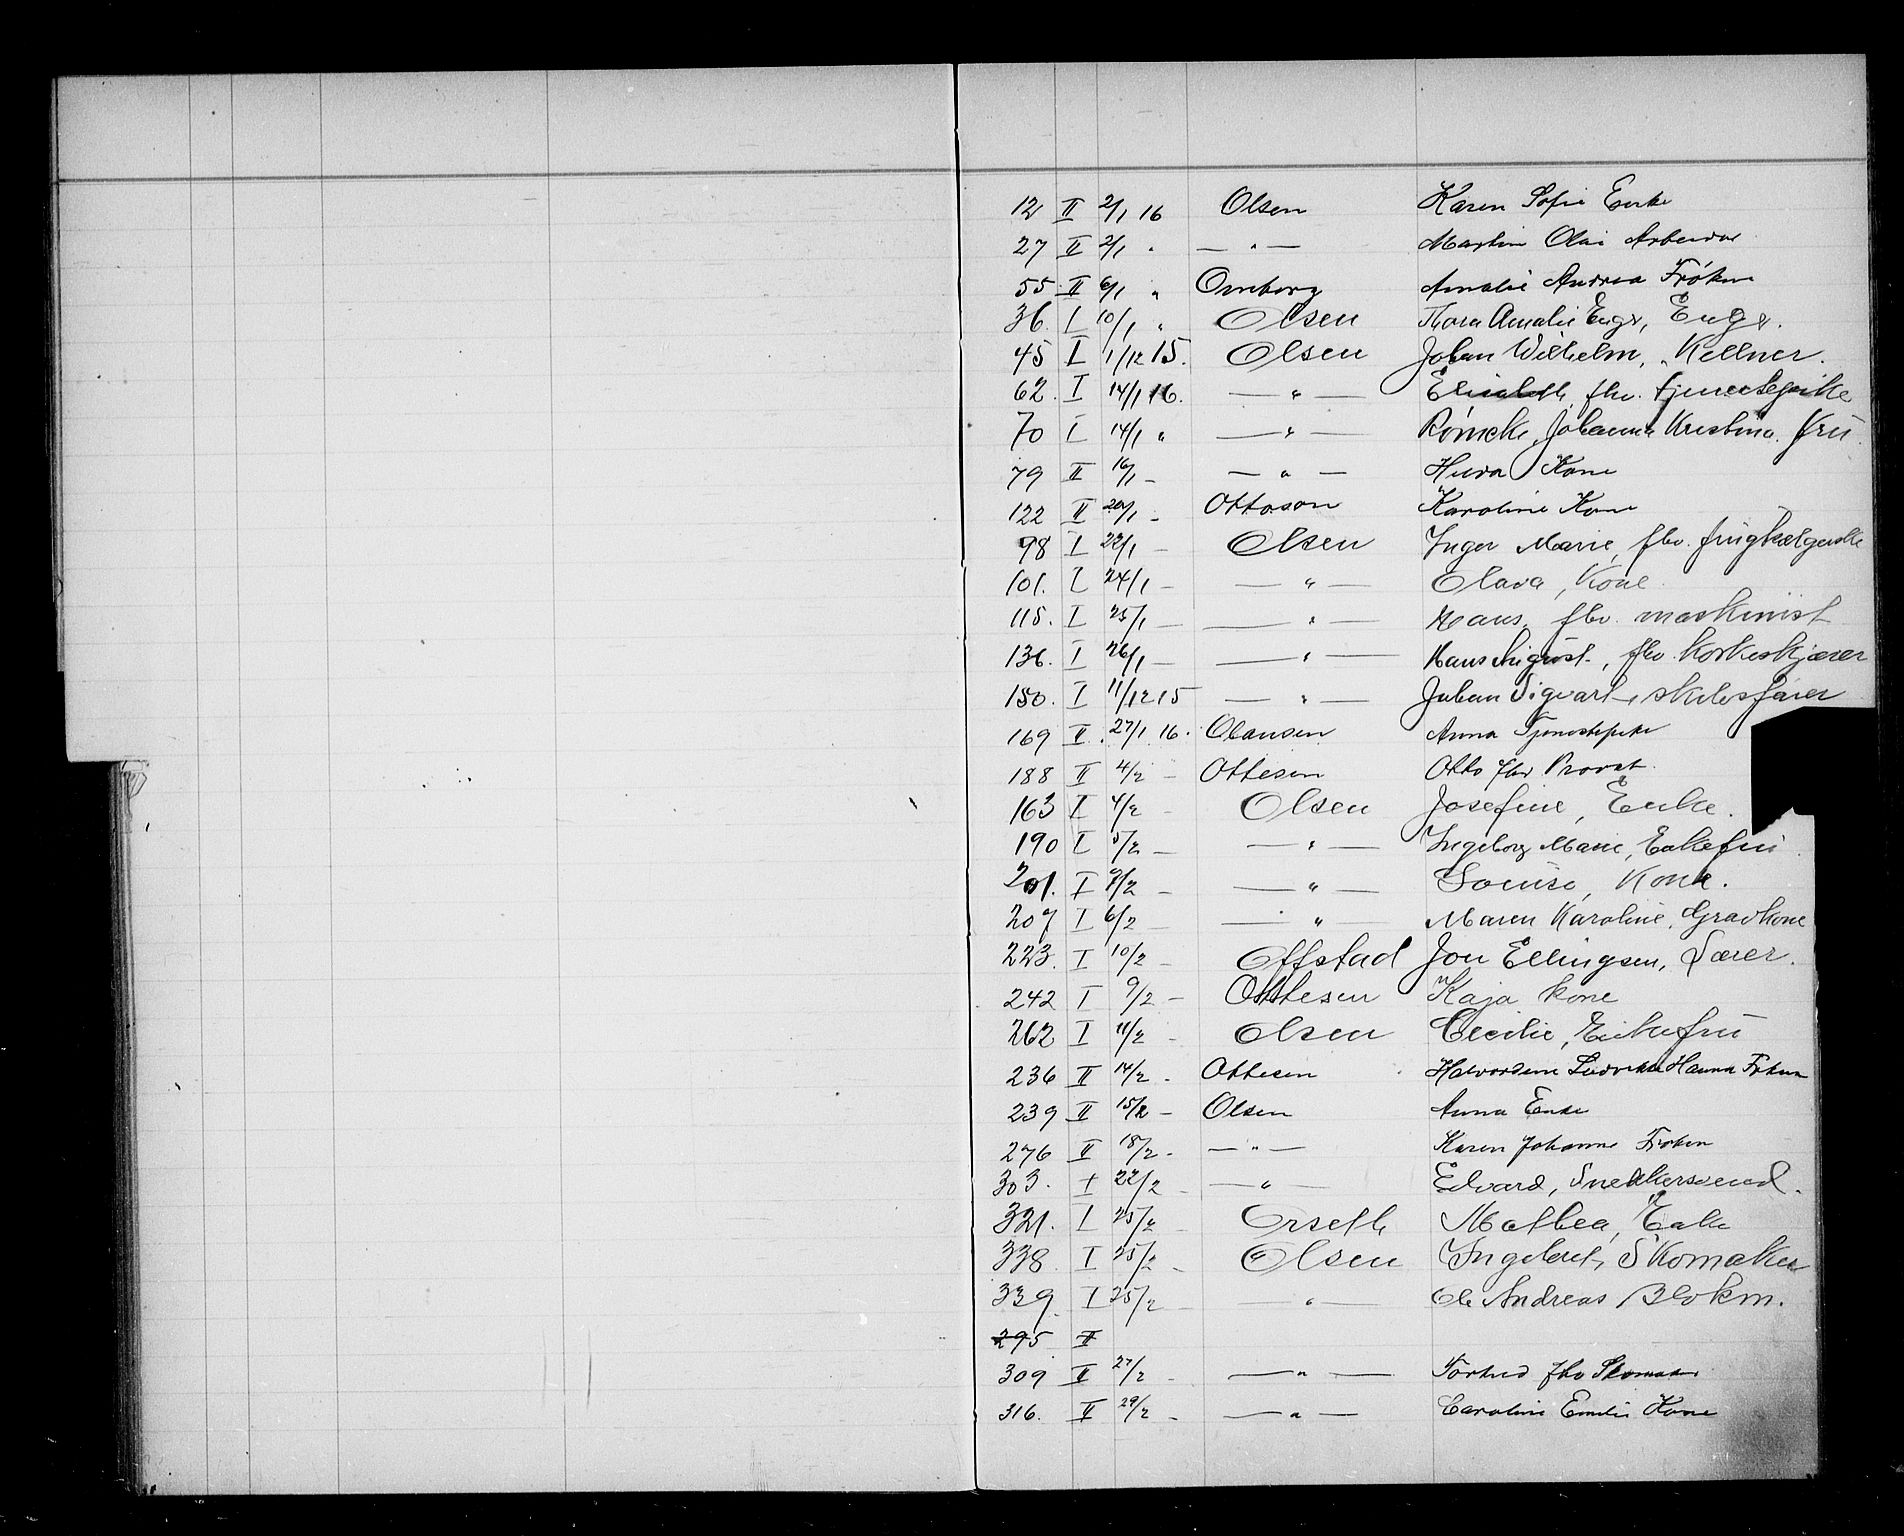 12 II 2/1 16 Olsen Karen Sofie Enke
27 II 2/1 " — " — Martin Olai Arbeider
55 II 6/1 " Ornborg Amalie Andrea Frøken
36. I 10/1 " Olsen Thora Amalie Engr, Engr.
45 I 1/12 15. Olsen Johan Wilhelm, Kellner.
62. I 14/1 16. — " — Elisabeth, fhv. tjenestepike
70 I 14/1 " — " — Johanne Kristine. Fru
79 II 16/1 - — " — Kone
122 II 20/1 - Ottoson Karoline Kone
98 I 22/1 - Olsen Inger Marie, fhv.
101. I 24/1 - — " — Olava, Kone
115. I 25/1 - — " — Hans, fhv. maskinist
136. I 26/1 - — " — Hans August, fhv. Korkeskjærer
150. I 11/12 15 — " — Johan Sigvart, skibsfører
169 II 27/1 16. Olausen Anna Tjenestepike
188 II 4/2 - Ottesen Otto fhv Provst.
163 I 4/2 - Olsen Josefine, Enke.
190 I 5/2 - — " — Ingeborg Marie, Enkefru
201. I 7/2 - — " — Louise, Kone.
207 I 6/2 - — " — Maren Karoline, Gravkone
223. I 10/2 - Offstad Jon Ellingsen, Lærer.
242 I 9/2 - Ottesen Kaja kone
262 I 11/2 - Olsen Cecilie, Enkefru
236 II 14/2 - Ottesen Halvordine Ludvikke Hanna Frøken
239 II 15/2 - Olsen Anna Enke
276 II 18/2 - — " — Karen Johanne Frøken
303. I 22/2 - — " — Edvard, Snekkersvend.
321. I 25/2 - Orseth Mathea, Enke
338 I 25/2 - Olsen Ingebret, Skomaker
339. I 25/2 - — " — Ole Andreas Blokm.
295 II
309 II 27/2 - — " — fhv Skomaker
316. II 29/2 - — " — Caroline Emilie Kone